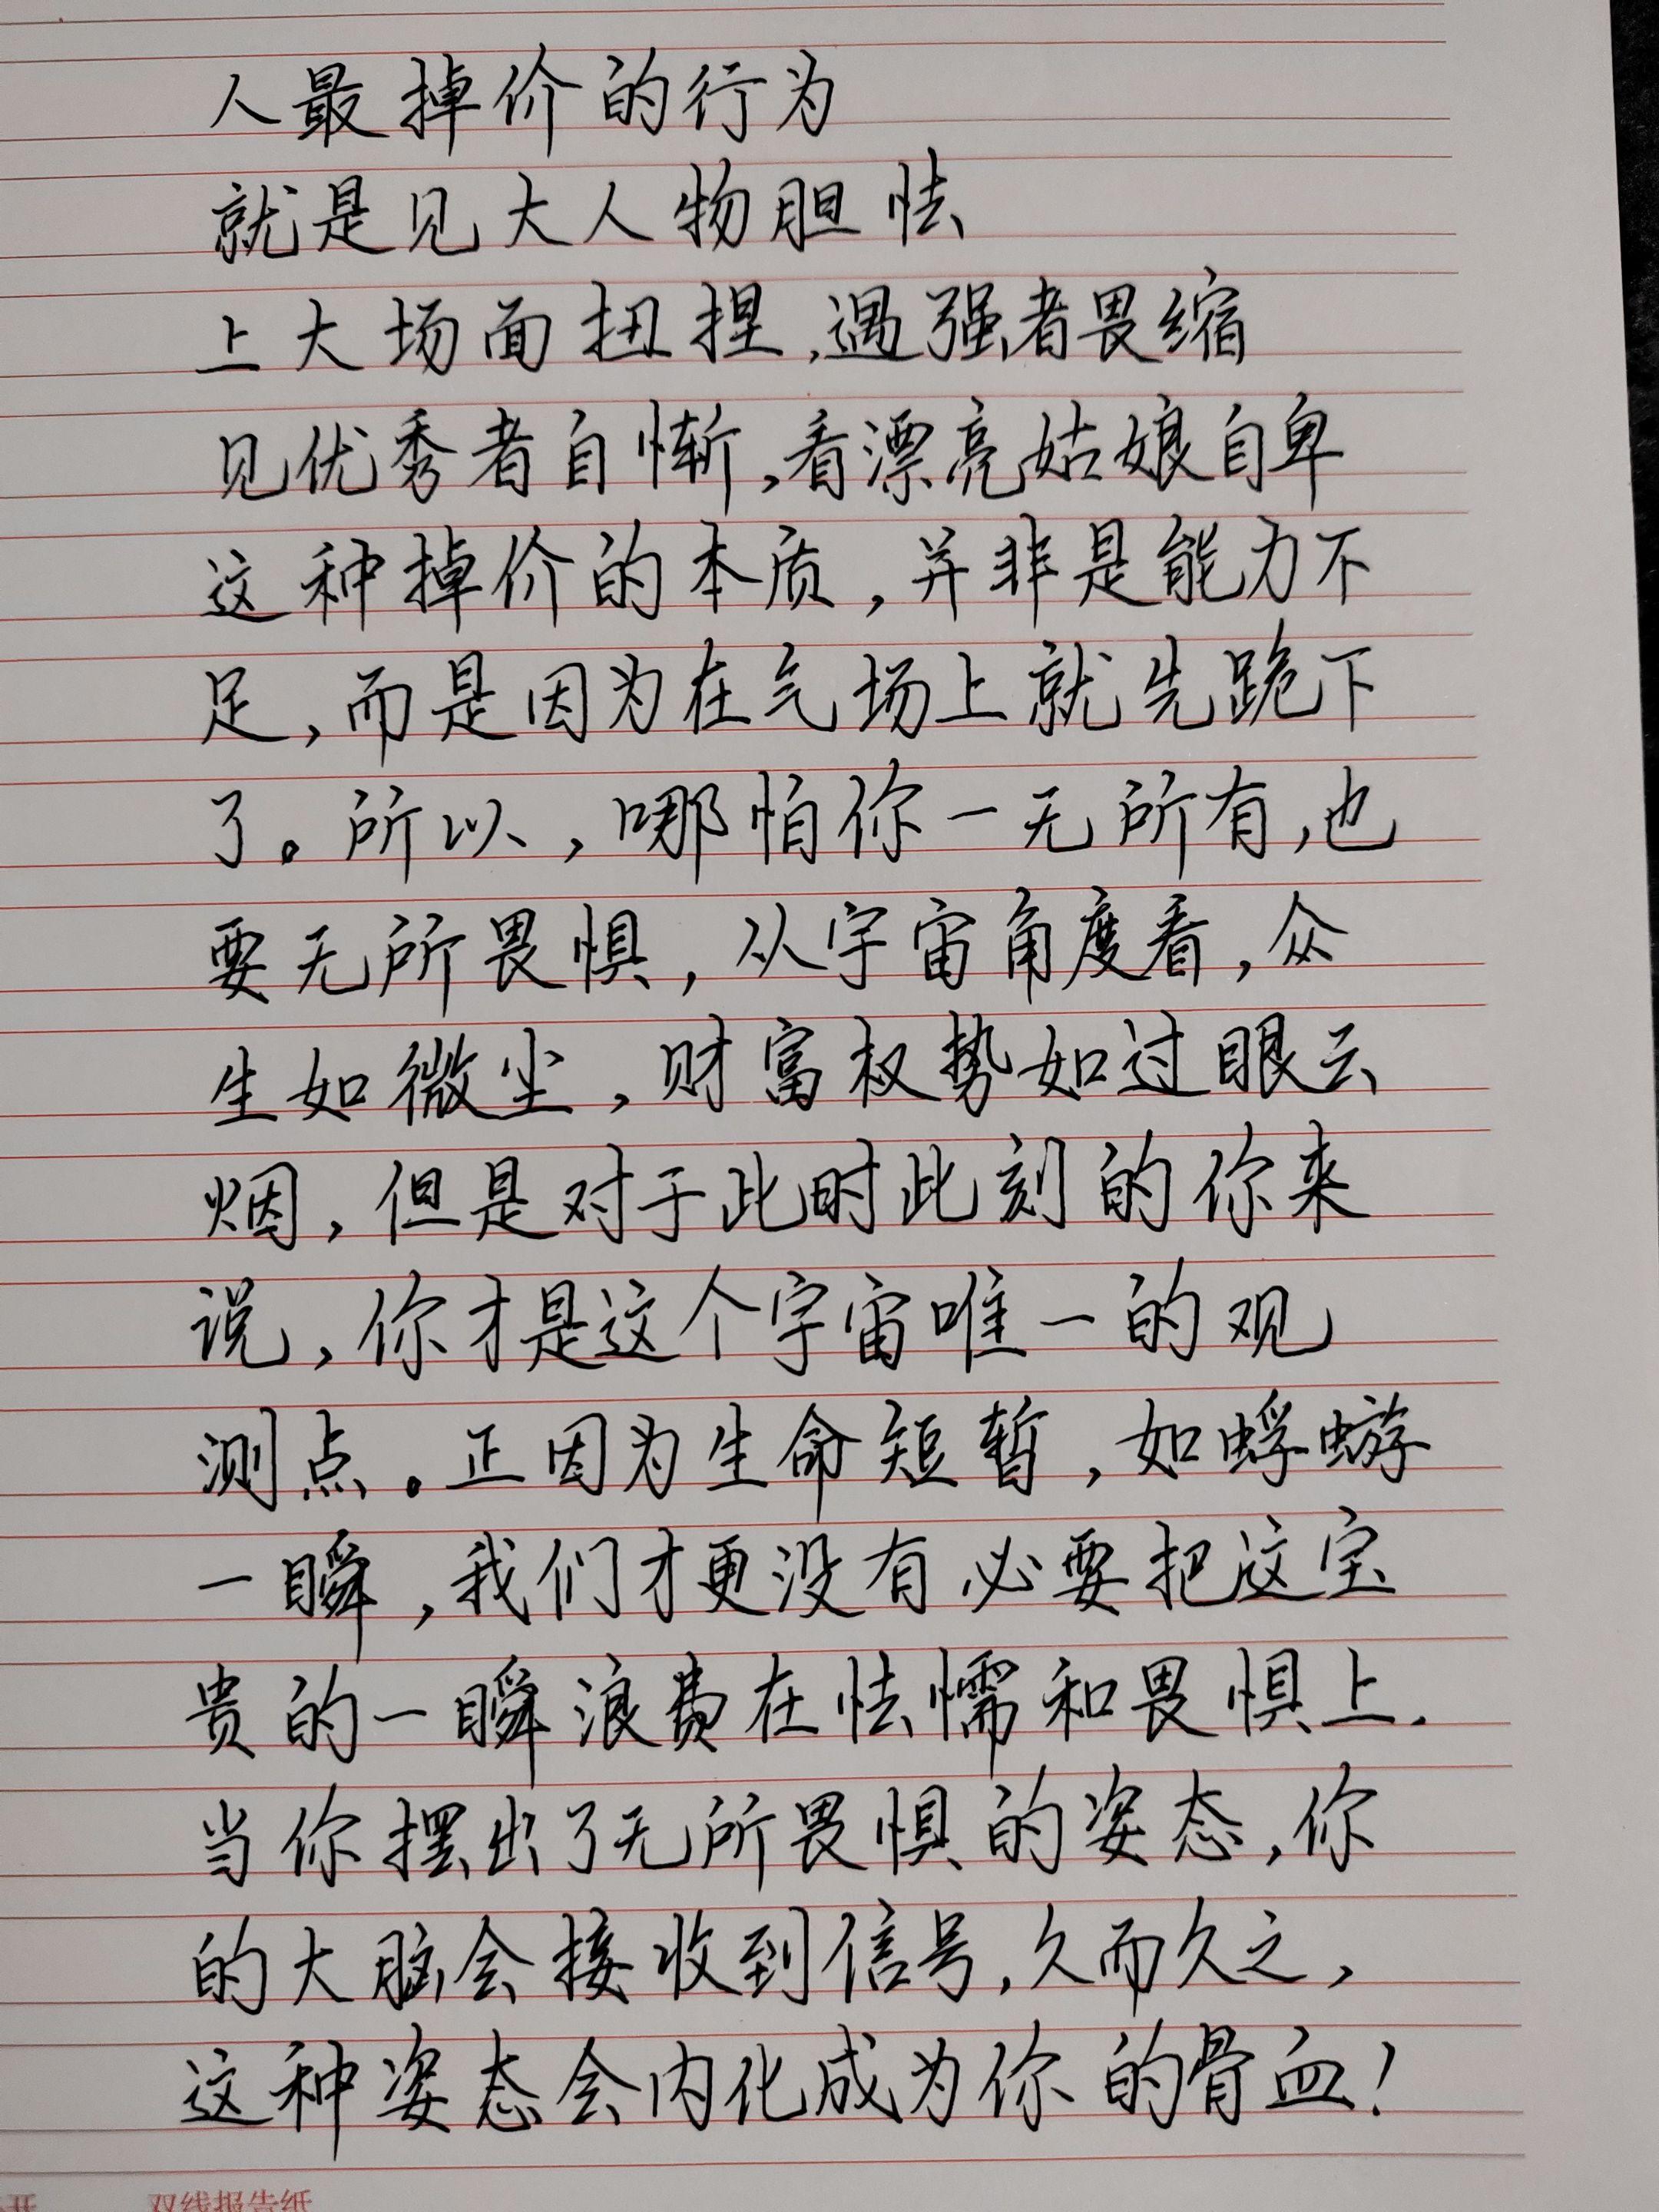 人最掉价的行为
就是见大人物胆怯
上大场面扭捏,遇强者畏缩
见优秀者自惭,看漂亮姑娘自卑
这种掉价的本质,并非是能力不
足,而是因为在气场上就先跪下
了。所以,哪怕你一无所有,也
要无所畏惧,从宇宙角度看,众
生如微尘,财富权势如过眼云
烟,但是对于此时此刻的你来
说,你才是这个宇宙唯一的观
测点。正因为生命短暂,如蜉蝣
一瞬,我们才更没有必要把这宝
贵的一瞬浪费在怯懦和畏惧上.
当你摆出了无所畏惧的姿态,你
的大脑会接收到信号,久而久之,
这种姿态会内化成为你的骨血!
开 双线报告纸